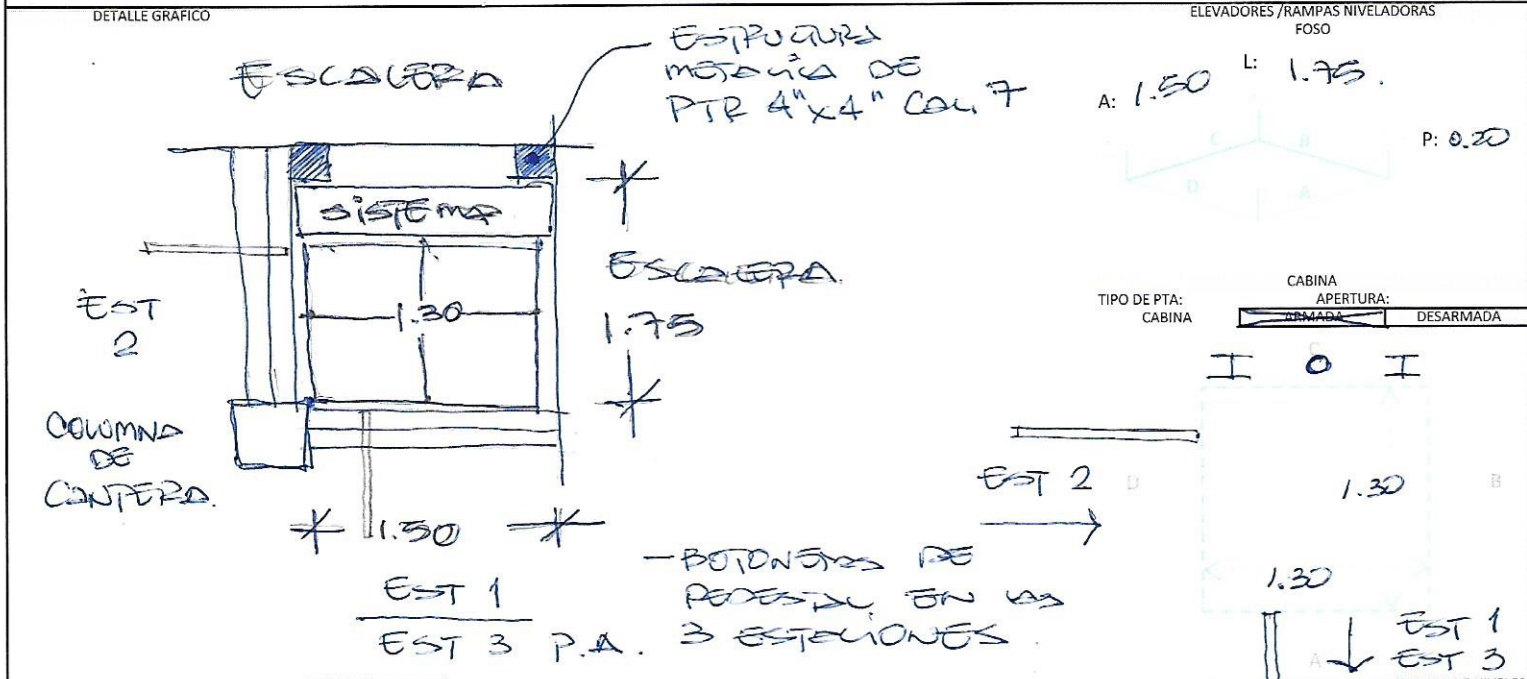 DETALLE GRAFICO
ESCALERA
ESTRUCTURA
METALICA DE
PTR 4"x4" CAL. 7
SISTEMA
1.30
EST
2
ESCALERA.
1.75
COLUMNA
DE
CANTERA.
1.50
EST 1
EST 3 P.A.
- BOTONERAS DE
PEDESTAL EN LAS
3 ESTACIONES
ELEVADORES /RAMPAS NIVELADORAS
FOSO
A: 1.50 L: 1.75.
P: 0.20
C B
D A
CABINA
TIPO DE PTA: APERTURA:
CABINA ARMADA DESARMADA
C
EST 2 D
1.30
B
1.30
A
EST 1
EST 3